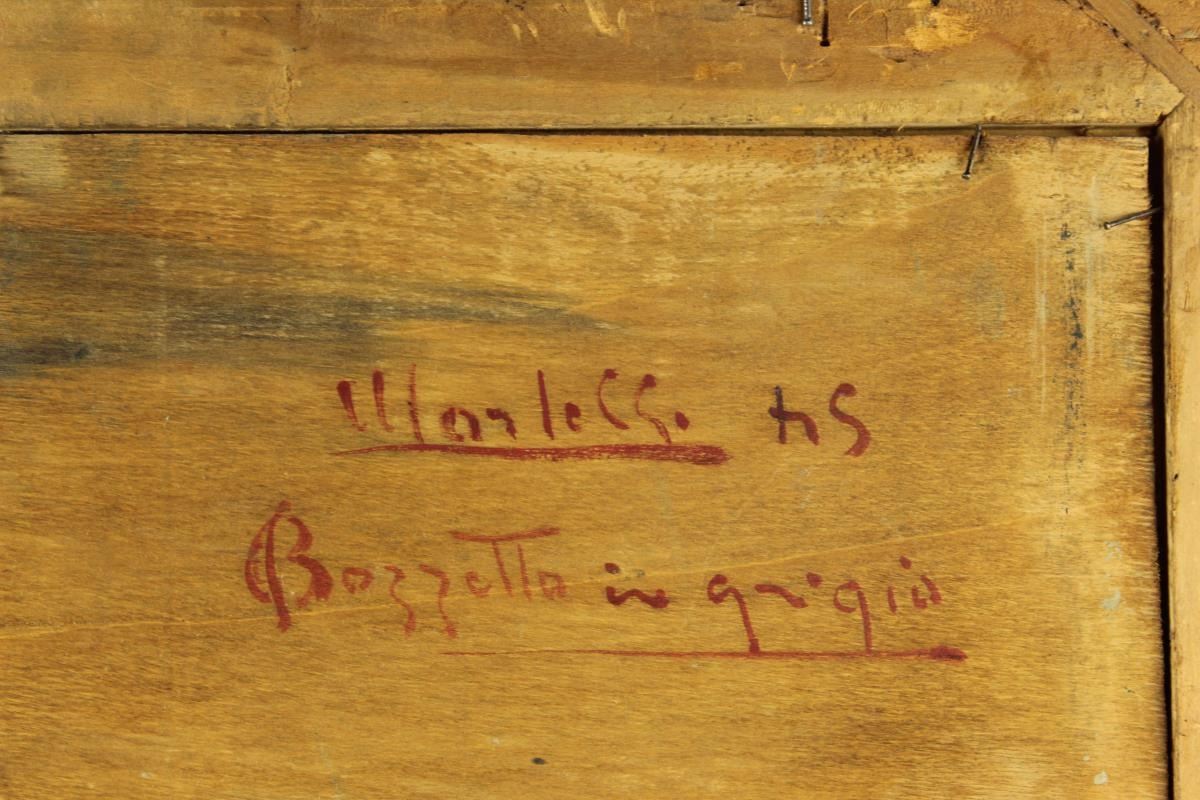 Martelli. 45
Bozzetto in grigio